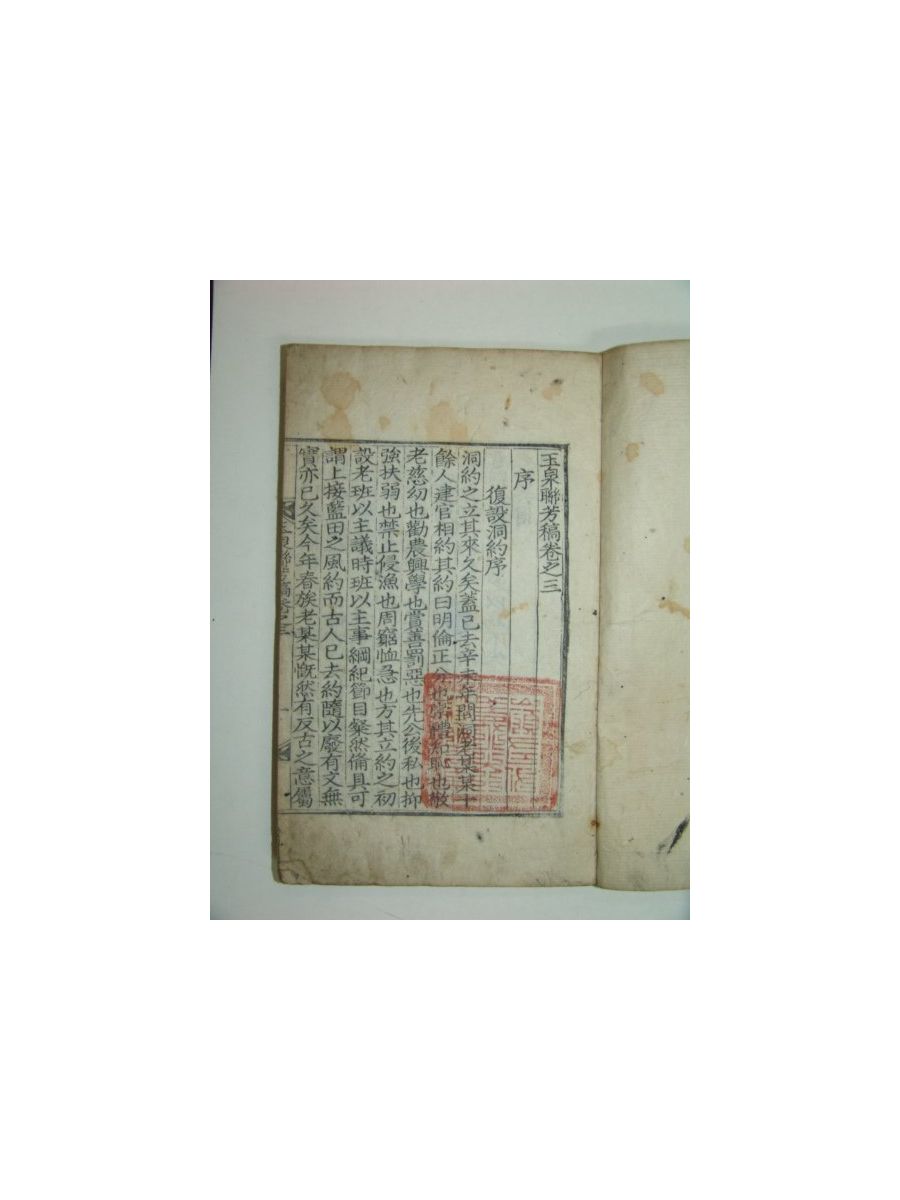 玉泉聯芳稿卷之三
序
復設洞約序
洞約之立其來久矣蓋已去辛未年間洞老某某十
餘人建官相約其約曰明倫正分也崇禮知恥也敬
老慈幼也勸農興學也賞善罰惡也先公後私也抑
強扶弱也禁止侵漁也周窮恤急也方其立約之初
設老班以主議時班以主事綱紀節目粲然俻具可
謂上接藍田之風約而古人已去約隨以廢有文無
實亦已久矣今年春族老某某慨然有反古之意屬
玉泉聯芳稿卷之三
一